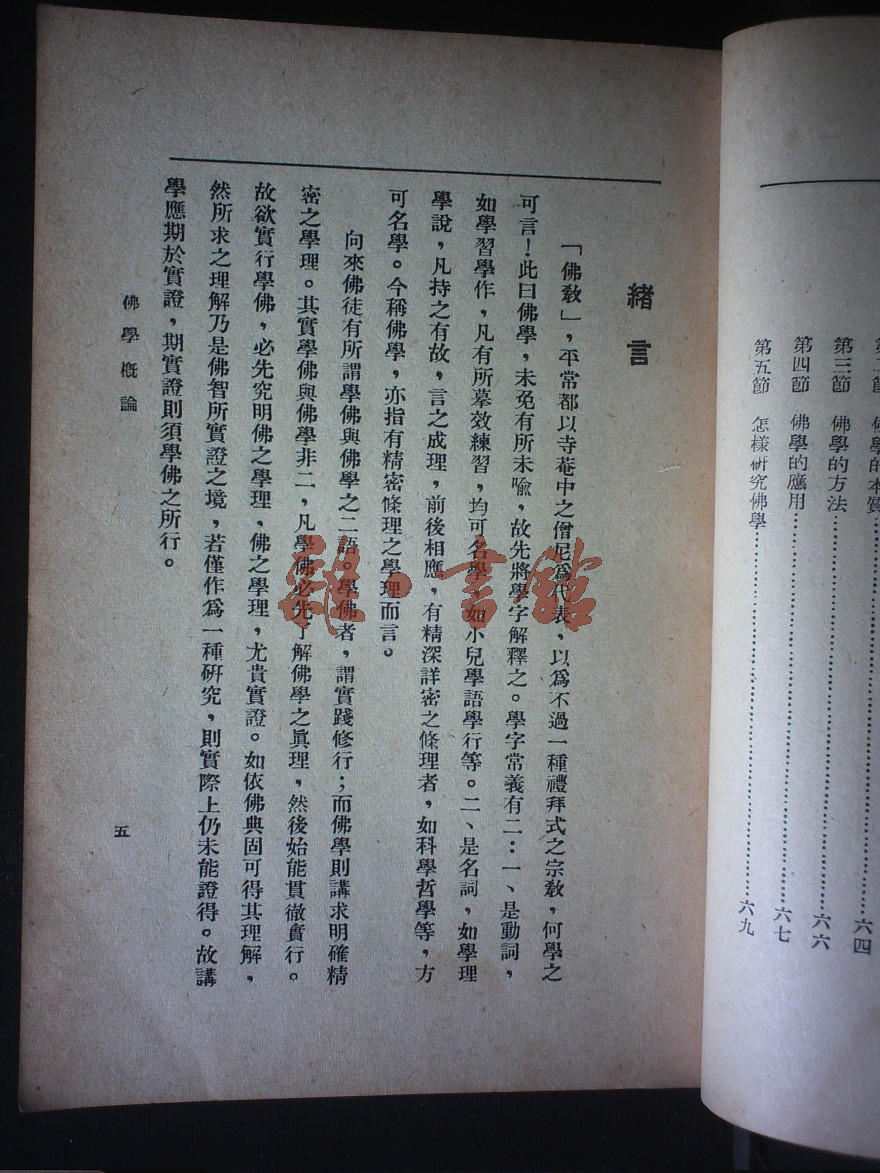 第三節　佛學的方法……六六
第四節　佛學的應用……六七
第五節　怎樣硏究佛學……六九
緒言
「佛敎」，平常都以寺菴中之僧尼爲代表，以爲不過一種禮拜式之宗敎，何學之
可言！此曰佛學，未免有所未喩，故先將學字解釋之。學字常義有二：一、是動詞，
如學習學作，凡有所摹效練習，均可名學，如小兒學語學行等。二、是名詞，如學理
學說，凡持之有故，言之成理，前後相應，有精深詳密之條理者，如科學哲學等，方
可名學。今稱佛學，亦指有精密條理之學理而言。
向來佛徒有所謂學佛與佛學之二語。學佛者，謂實踐修行；而佛學則講求明確精
密之學理。其實學佛與佛學非二，凡學佛必先了解佛學之眞理，然後始能貫徹實行。
故欲實行學佛，必先究明佛之學理，佛之學理，尤貴實證。如依佛典固可得其理解，
然所求之理解乃是佛智所實證之境，若僅作爲一種硏究，則實際上仍未能證得。故講
學應期於實證，期實證則須學佛之所行。
佛學槪論
五